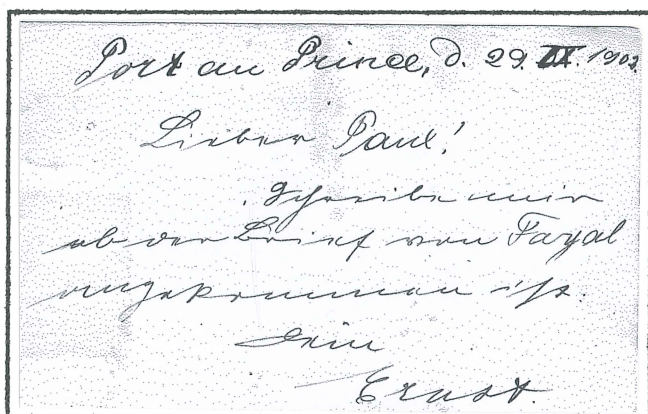 Port au Prince, d. 29. IX. 1902.
Lieber Paul!
Schreibe mir
ob der Brief von Fayal
angekommen ist.
Dein
Ernst.